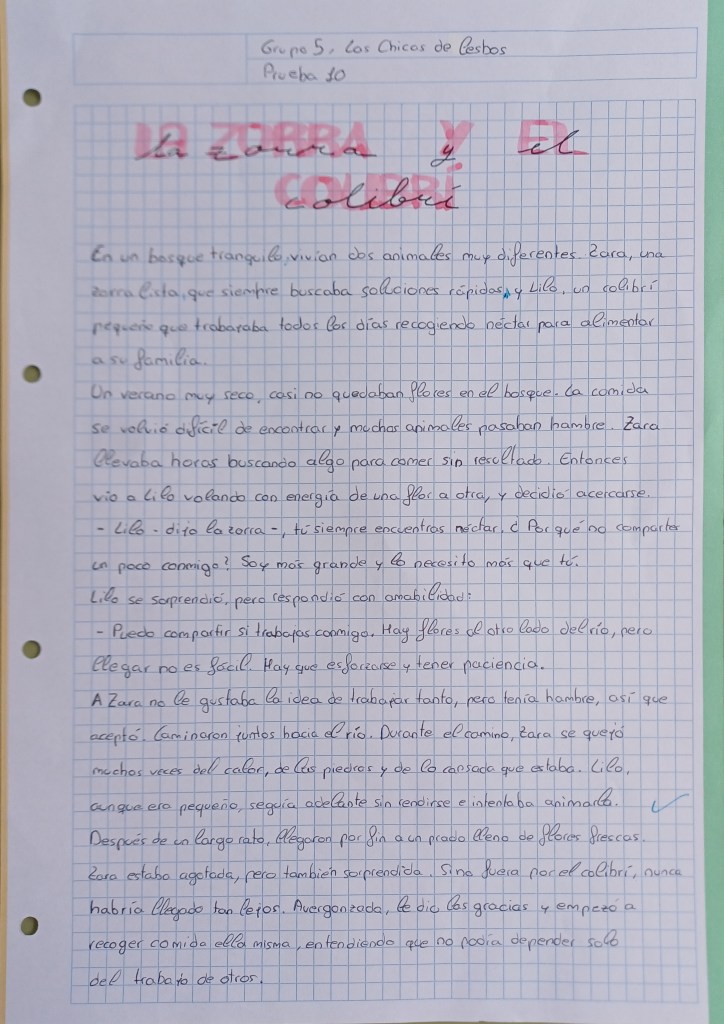 Grupo 5, Las Chicas de Lesbos
Prueba 10
La zorra y el
colibrí
En un bosque tranquilo, vivían dos animales muy diferentes. Zara, una
zorra lista, que siempre buscaba soluciones rápidas, y Lilo, un colibrí
pequeño que trabajaba todos los días recogiendo néctar para alimentar
a su familia.
Un verano muy seco, casi no quedaban flores en el bosque. La comida
se volvió difícil de encontrar y muchos animales pasaban hambre. Zara
llevaba horas buscando algo para comer sin resultado. Entonces
vio a Lilo volando con energía de una flor a otra, y decidió acercarse.
- Lilo - dijo la zorra -, tú siempre encuentras néctar. ¿Por qué no compartes
un poco conmigo? Soy más grande y lo necesito más que tú.
Lilo se sorprendió, pero respondió con amabilidad:
- Puedo compartir si trabajas conmigo. Hay flores al otro lado del río, pero
llegar no es fácil. Hay que esforzarse y tener paciencia.
A Zara no le gustaba la idea de trabajar tanto, pero tenía hambre, así que
aceptó. Caminaron juntos hacia el río. Durante el camino, Zara se quejó
muchas veces del calor, de las piedras y de lo cansada que estaba. Lilo,
aunque era pequeño, seguía adelante sin rendirse e intentaba animarla.
Después de un largo rato, llegaron por fin a un prado lleno de flores frescas.
Zara estaba agotada, pero también sorprendida. Si no fuera por el colibrí, nunca
habría llegado tan lejos. Avergonzada, le dio las gracias y empezó a
recoger comida ella misma, entendiendo que no podía depender solo
del trabajo de otros.